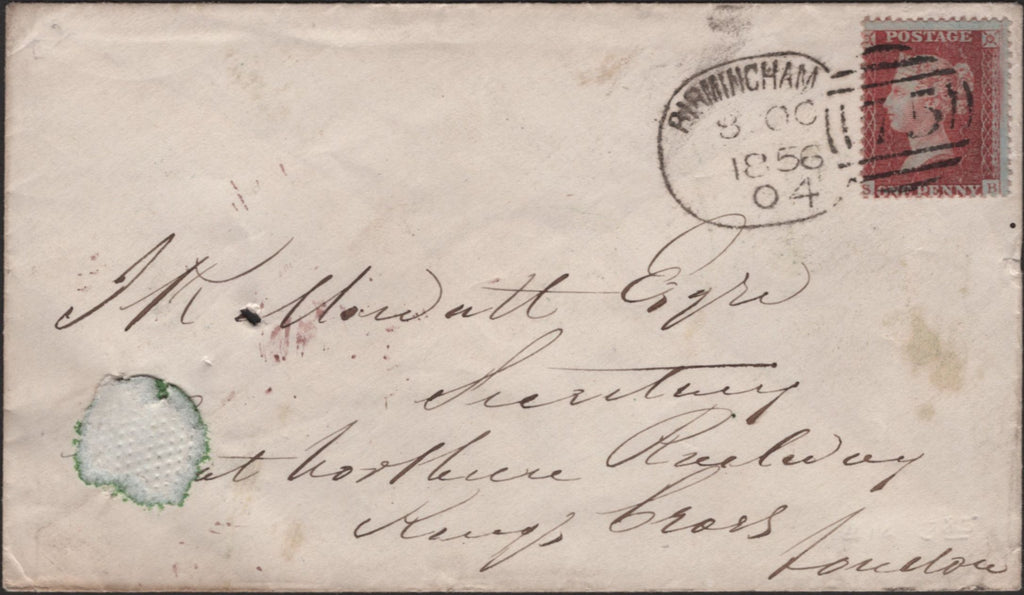 POSTAGE
BIRMINGHAM
8 OC
1856
04
75
S ONE PENNY B
J R Mowatt Esqre
Secretary
at Northern Railway
Kings Cross
London